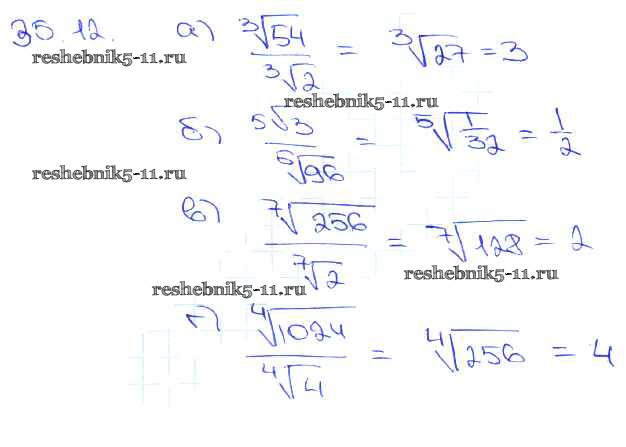 35.12. а) ∛54 / ∛2 = ∛27 = 3
reshebnik5-11.ru
reshebnik5-11.ru
б) ⁵√3 / ⁵√96 = ⁵√(1/32) = 1/2
reshebnik5-11.ru
в) ⁷√256 / ⁷√2 = ⁷√128 = 2
reshebnik5-11.ru
reshebnik5-11.ru
г) ⁴√1024 / ⁴√4 = ⁴√256 = 4